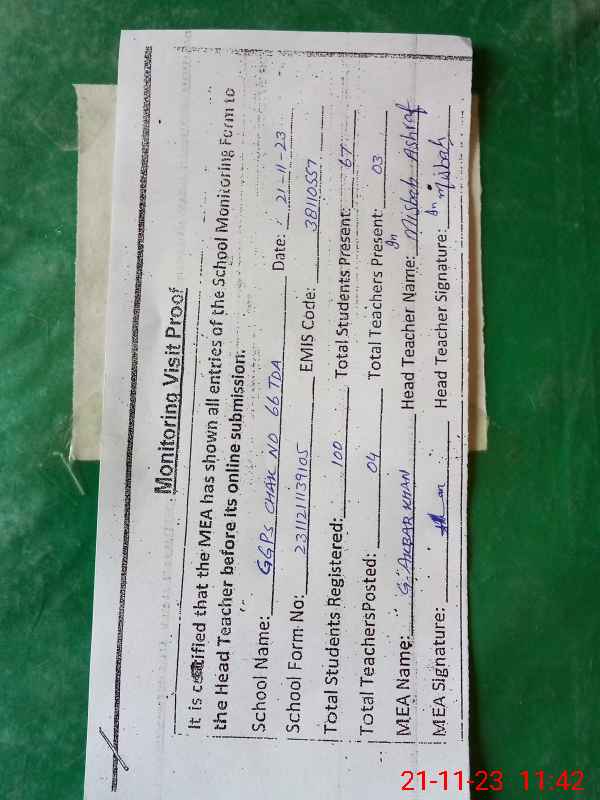 Monitoring Visit Proof
It is certified that the MEA has shown all entries of the School Monitoring Form to
the Head Teacher before its online submission.
School Name: GGPS CHAK NO 66 TDA Date: 21-11-23
School Form No: 2311211139105 EMIS Code: 38110557
Total Students Registered: 100 Total Students Present: 67
Total TeachersPosted: 04 Total Teachers Present: 03
MEA Name: G. AKBAR KHAN Head Teacher Name: In Misbah Ashraf
MEA Signature: Head Teacher Signature: In Misbah
21-11-23 11:42